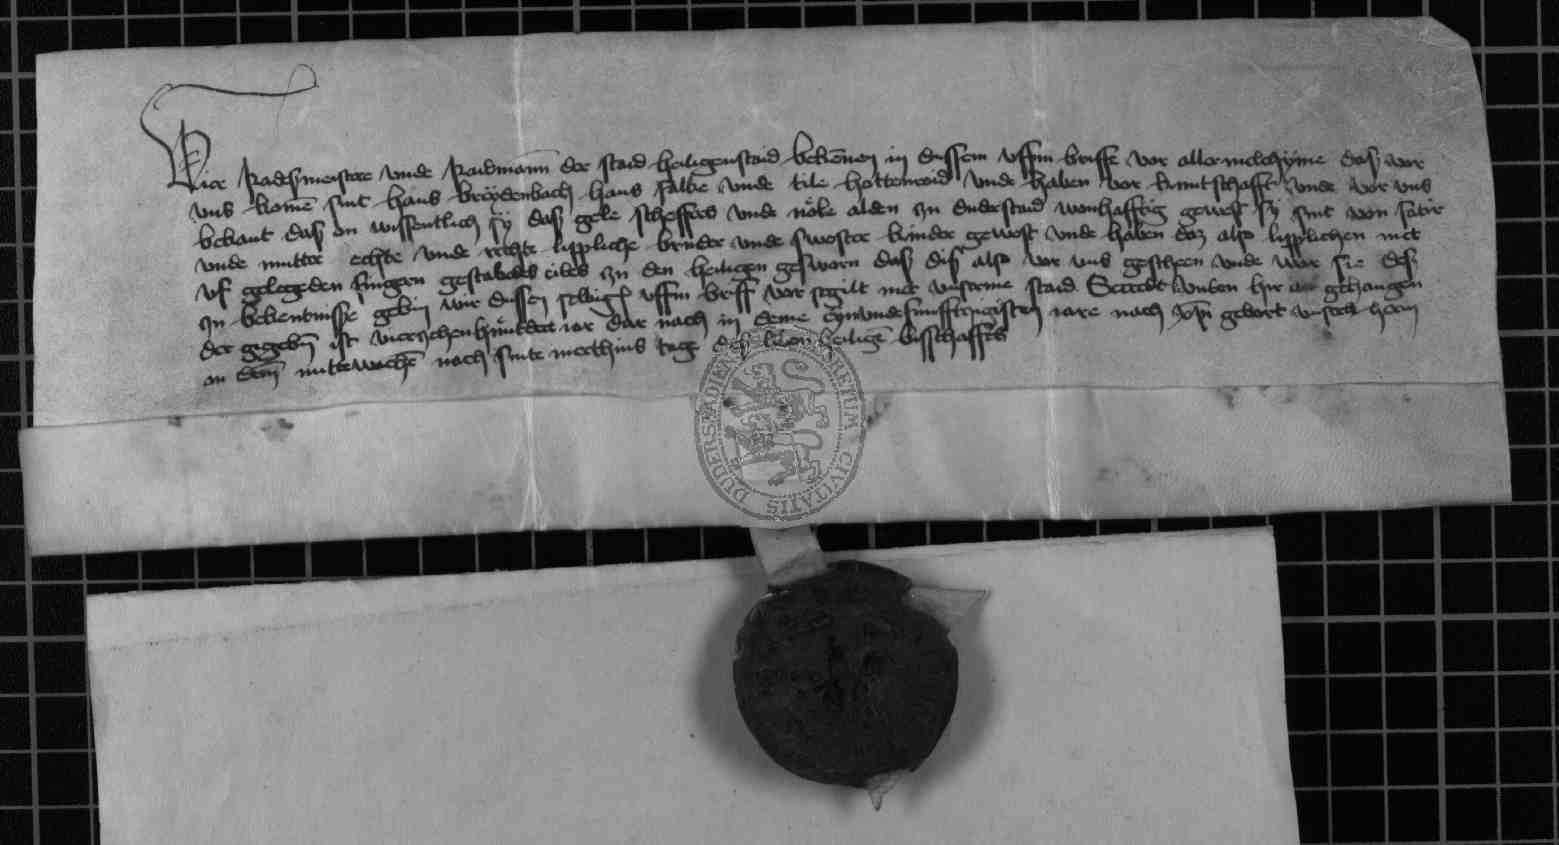 Wir Radesmeistere unde Raidmann der staid heiligenstaid bekennen in dussem uffin briffe vor allermelchyme daß vor
uns komen sint hans breydenbach hans falke unde tile hottenroid unde haben vor kuntschafft unde vor uns
bekant daß on wissentlich sy daß gele scheffers unde nole alden zu duderstaid wonhafftig gewest sy sint von fatir
unde mutter echte unde rechte lippliche bruder unde swoster kinder gewest unde haben daz also lipplichen met
uf gelegeden fingern gestabedes eides zu den heiligen gesworn daß diß also vor uns gescheen unde war sie deß
zu bekentnisse gebin wir dussen selbigen uffin briff vor segilt met unserme staid Secrebt unden hir an gehangen
der gegebin ist vierzehenhundert iar dar nach in deme eynundefunfftzigisten iare nach xpi gebort unsers herrn
an deme mittewochen nach sinte merthins tage deß liben heiligen bisschaffes
DUDERSTADIEN
RETUM CIVITATIS